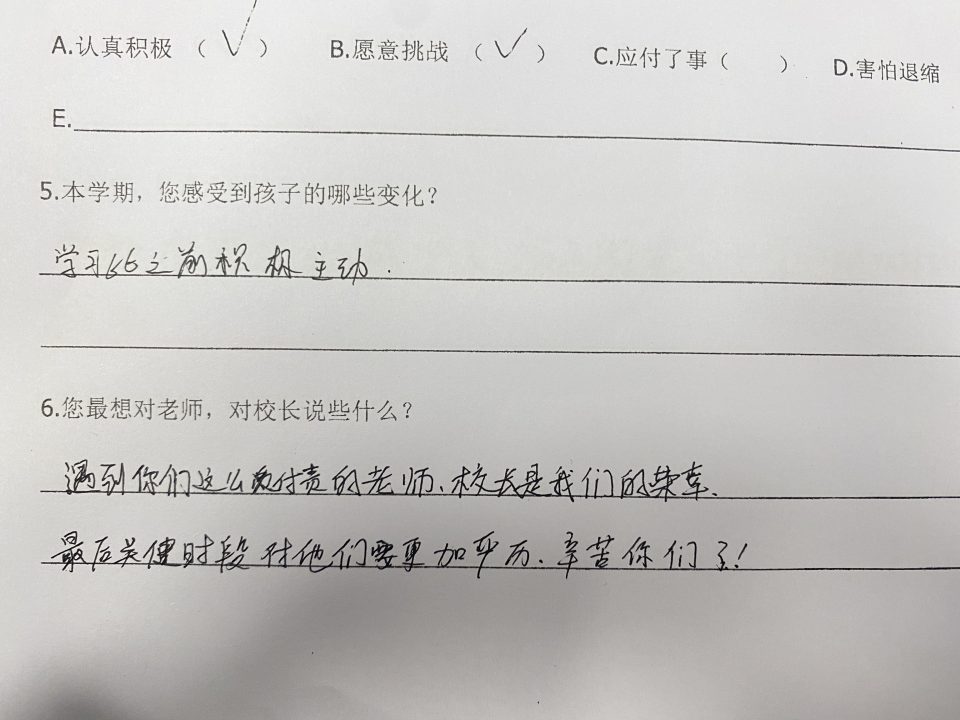 A.认真积极 （ √ ） B.愿意挑战 （ √ ） C.应付了事（ ） D.害怕退缩
E.
5.本学期，您感受到孩子的哪些变化？
学习比之前积极主动.
6.您最想对老师，对校长说些什么？
遇到你们这么负责的老师、校长是我们的荣幸.
最后关健时段对他们要更加严厉.辛苦你们了！